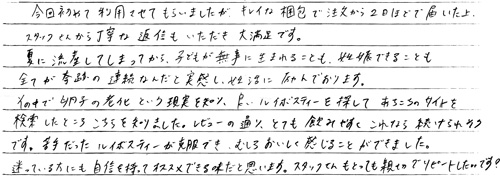 今回初めて利用させてもらいましたが、キレイな梱包で注文から2日ほどで届いたよ、
スタッフさんから丁寧な返信もいただき大満足です。
夏に流産してしまってから、子どもが無事に生まれることも、妊娠できることも
全てが奇跡の連続なんだと実感し、妊活に励んでおります。
その中で卵子の老化という現実を知り、良いルイボスティーを探してあちこちのサイトを
検索したところこちらを知りました。レビューの通り、とても飲みやすくこれなら続けられそう
です。苦手だったルイボスティーが克服でき、むしろおいしく感じることができました。
迷っている方にも自信を持ってオススメできる味だと思います。スタッフさんもとっても親切でリピートしたいです!